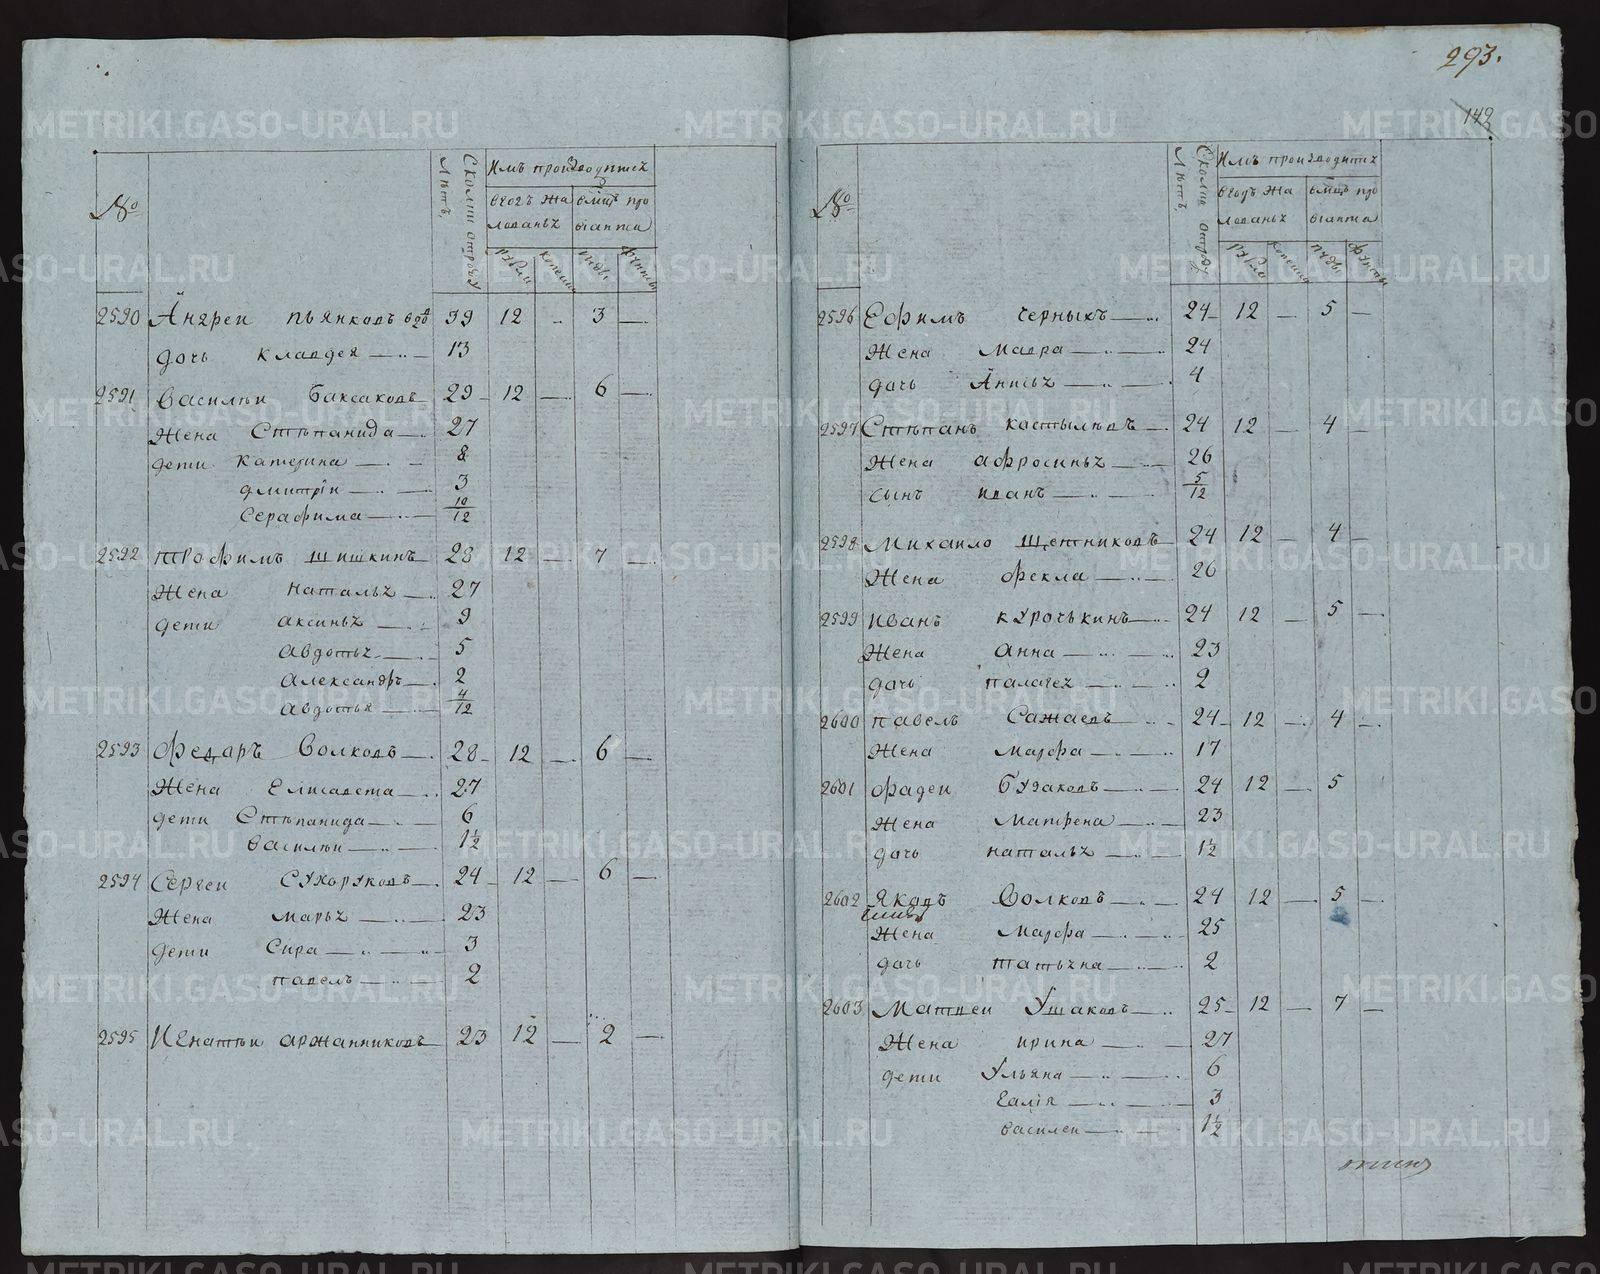 293.
142
№
Сколки отроду
Лѣтъ
Имъ производитса
вгодъ жа
лованьѧ
вмѣсѣцъ про
вианта
рубли
копеики
пуды
фунты
2590 Андреи пьянковъ вдо 39 12 3
дочь клавдея 13
2591 Василѣи Баксаковъ 29 12 6
Жена Стѣпанида 27
дети катерина 8
дмитрѣи 3
Серафима 10/12
2592 трофимъ шишкинъ 28 12 7
Жена наталья 27
дети аксинья 9
авдотья 5
александръ 2
авдотья 4/12
2593 Федаръ Волковъ 28 12 6
Жена Елисавета 27
дети Стѣпанида 6
василѣи 1½
2594 Сергеи Сухоруковъ 24 12 6
Жена марья 23
дети Сира 3
павелъ 2
2595 Игнатѣи аржанниковъ 23 12 2
№
Сколки отроду
Лѣтъ
Имъ производитса
вгодъ жа
лованья
вмѣсѣцъ про
вианта
рубли
копеики
пуды
фунты
2596 Ефимъ черныхъ 24 12 5
Жена мавра 24
дачь Анисья 4
2597 Стѣпанъ кастылѣвъ 24 12 4
Жена афросинья 26
сынъ иванъ 5/12
2598 Михаило щетниковъ 24 12 4
Жена фекла 26
2599 иванъ курочькинъ 24 12 5
Жена анна 23
дачь палагея 2
2600 павелъ Сажаевъ 24 12 4
Жена марфа 17
2601 фадеи Будаковъ 24 12 5
Жена матрена 23
дачь наталья 1½
2602 Яковъ Волковъ 24 12 5
Жена марфа 25
дачь татьяна 2
2603 Матвеи Ушаковъ 25 12 7
Жена ирина 27
дети Ульяна 6
Галія 3
василеи 1½